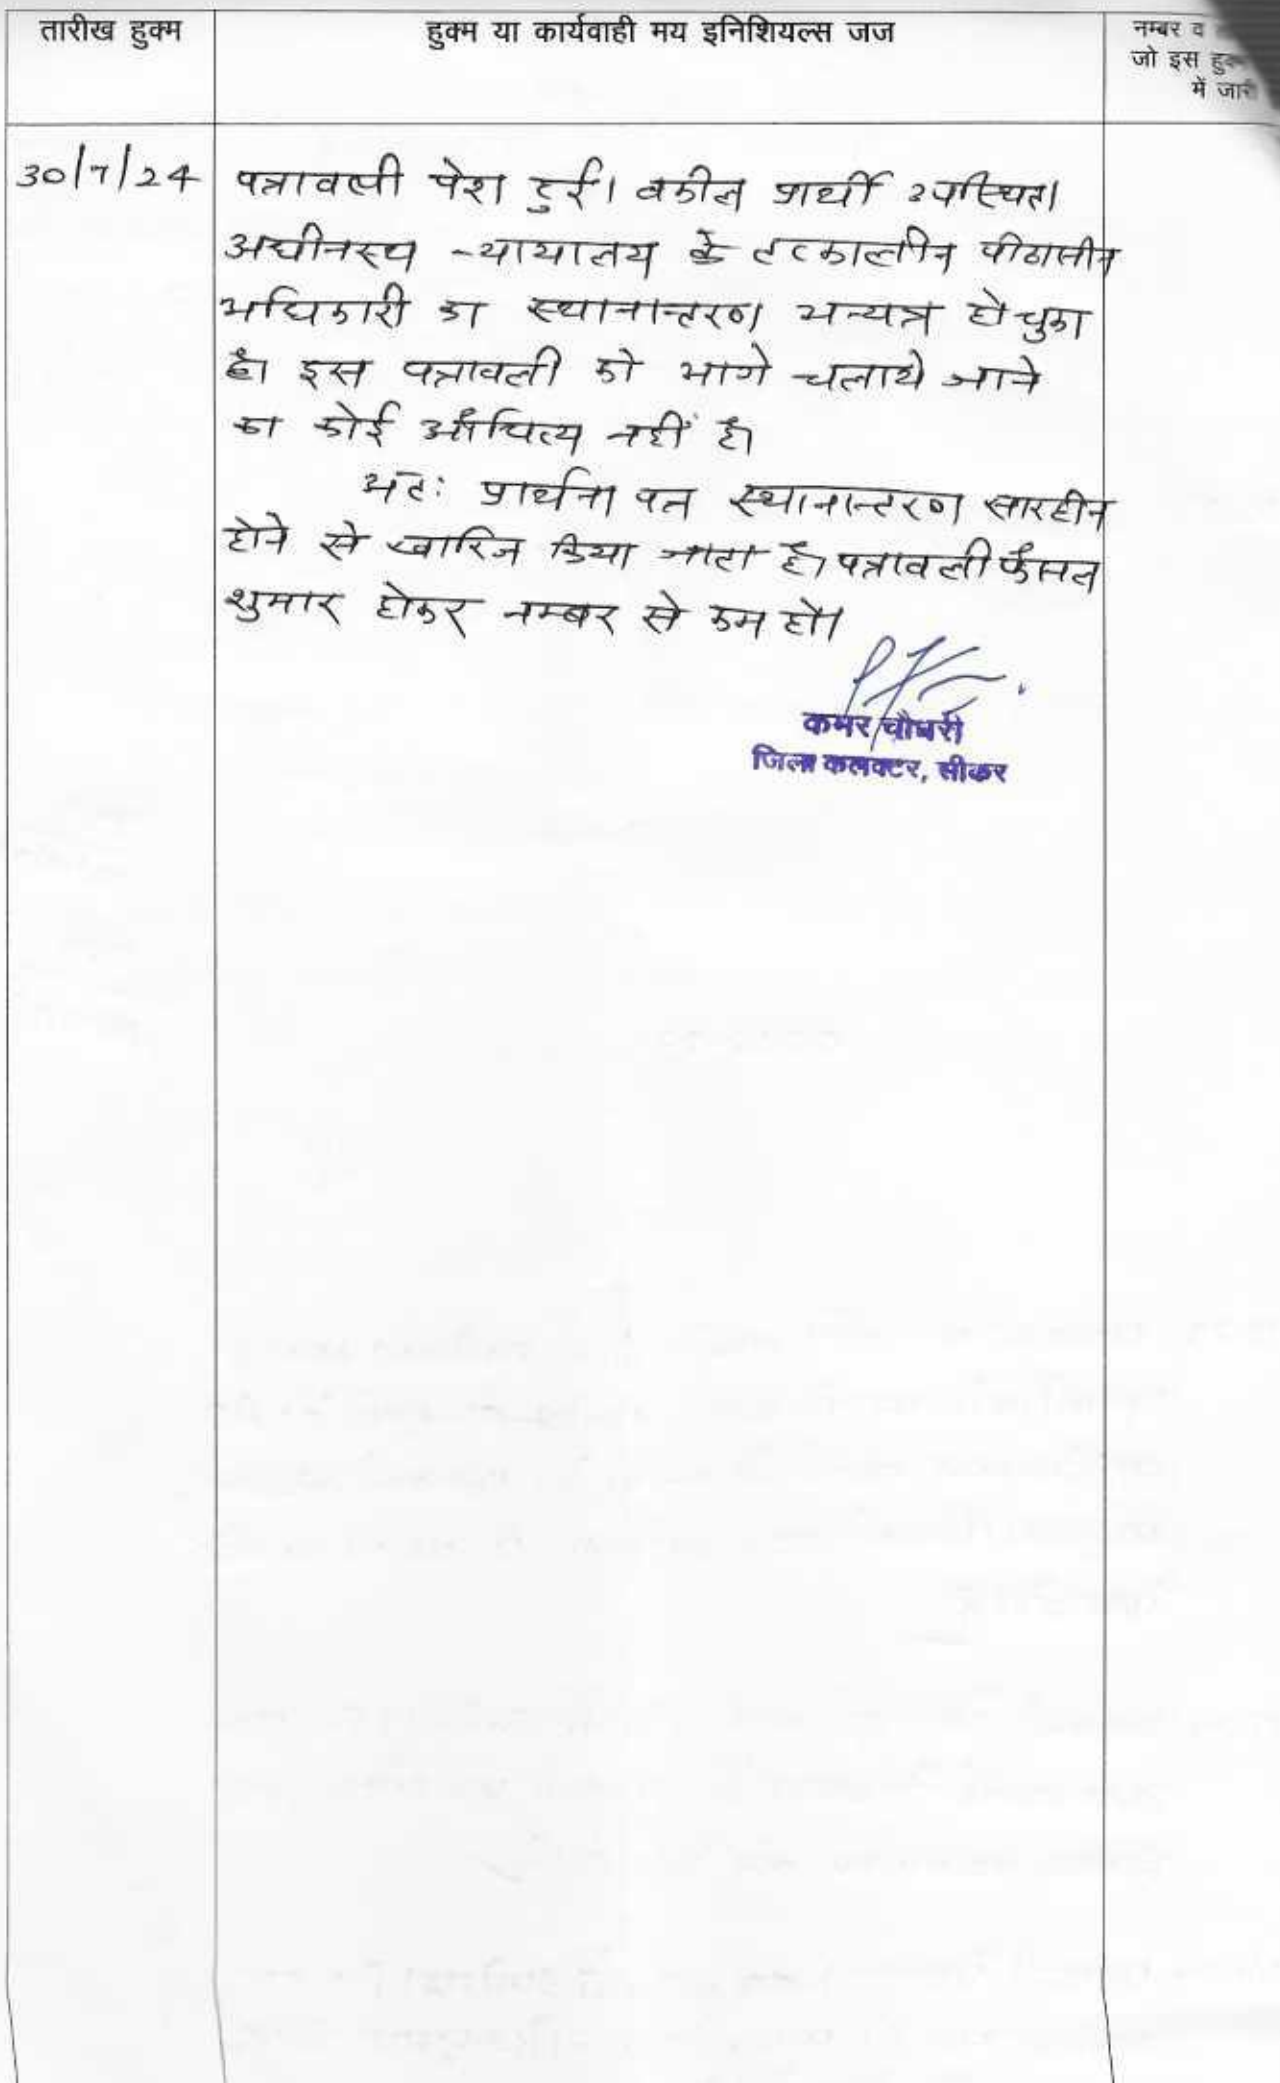 तारीख हुक्म
हुक्म या कार्यवाही मय इनिशियल्स जज
नम्बर व
जो इस
में जारी
30/7/24
पत्रावली पेश हुई। वकील प्रार्थी उपस्थित।
अधीनस्थ न्यायालय के तत्कालीन पीठासीन
अधिकारी का स्थानान्तरण अन्यत्र हो चुका
है। इस पत्रावली को आगे चलाये जाने
का कोई औचित्य नहीं है।
अतः प्रार्थना पत्र स्थानान्तरण सारहीन
होने से खारिज किया जाता है। पत्रावली फैसल
शुमार होकर नम्बर से कम हो।
कमर चौधरी
जिला कलक्टर, सीकर